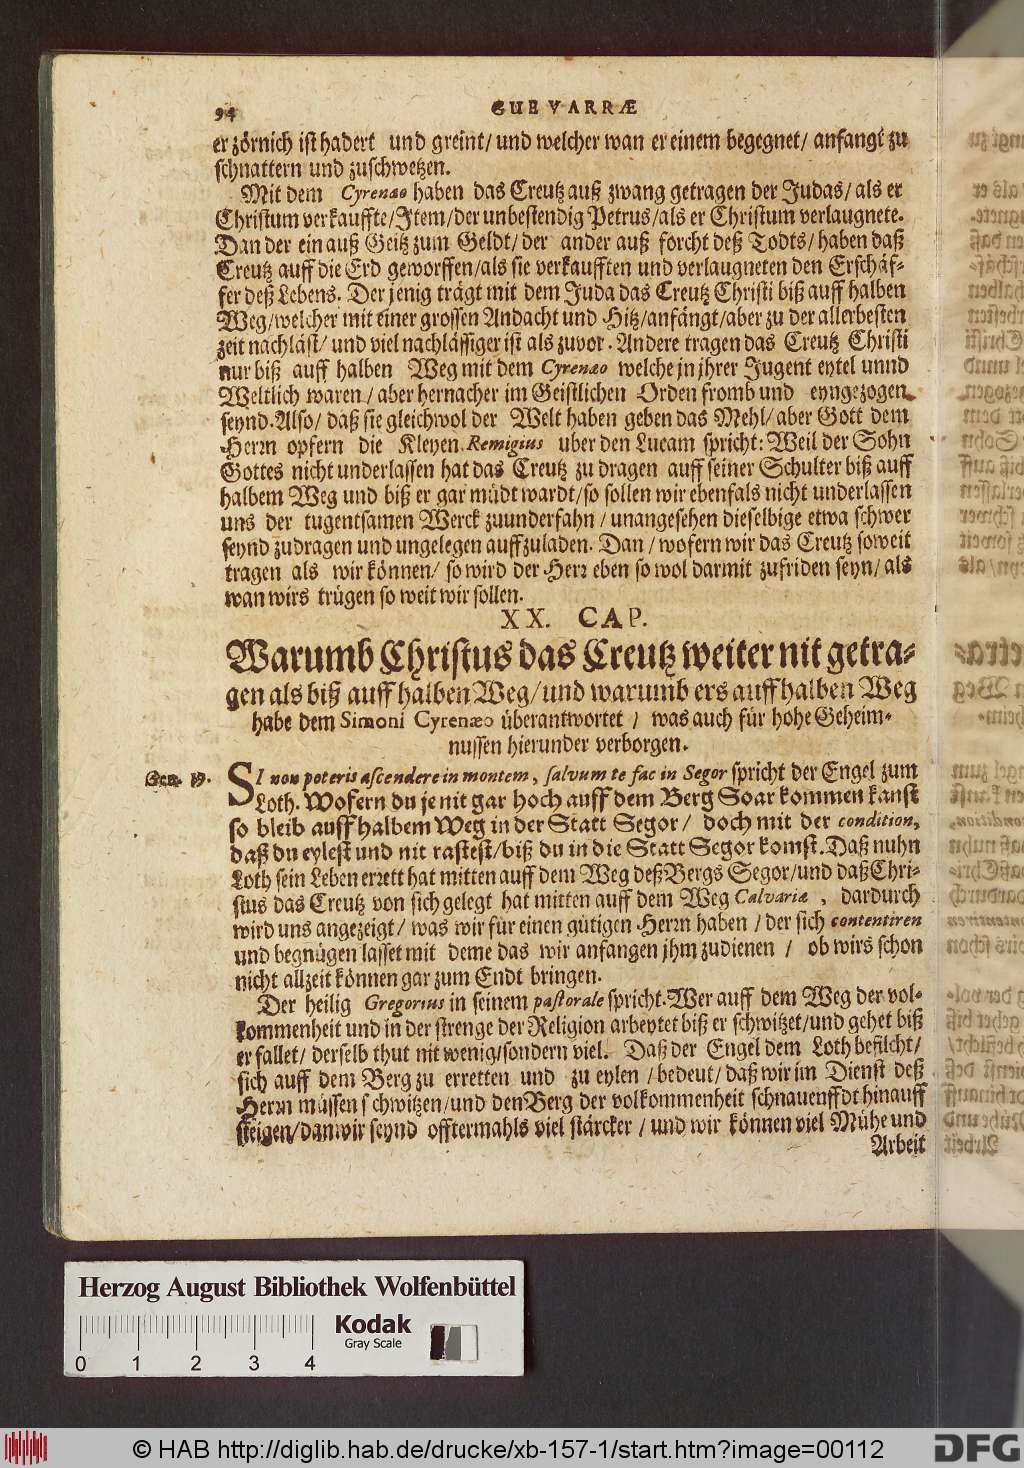 94 GUEVARRÆ
er zörnich ist hadert und greint/ und welcher wan er einem begegnet/ anfangt zu
schnattern und zuschwetzen.
Mit dem Cyrenæo haben das Creutz auß zwang getragen der Judas/ als er
Christum verkauffte/ Item/ der unbestendig Petrus/ als er Christum verlaugnete.
Dan der ein auß Geitz zum Geldt/ der ander auß forcht deß Todts/ haben daß
Creutz auff die Erd geworffen/ als sie verkaufften und verlaugneten den Erschäf-
fer deß Lebens. Der jenig trägt mit dem Juda das Creutz Christi biß auff halben
Weg/ welcher mit einer grossen Andacht und Hitz/ anfängt/ aber zu der allerbesten
zeit nachläst/ und viel nachlässiger ist als zuvor. Andere tragen das Creutz Christi
nur biß auff halben Weg mit dem Cyrenæo welche in jhrer Jugent eytel unnd
Weltlich waren/ aber hernacher im Geistlichen Orden fromb und eyngezogen
seynd. Also/ daß sie gleichwol der Welt haben geben das Mehl/ aber Gott dem
Herrn opfern die Kleyen. Remigius uber den Lucam spricht: Weil der Sohn
Gottes nicht underlassen hat das Creutz zu dragen auff seiner Schulter biß auff
halbem Weg und biß er gar müdt wardt/ so sollen wir ebenfals nicht underlassen
uns der tugentsamen Werck zuunderfahn/ unangesehen dieselbige etwa schwer
seynd zudragen und ungelegen auffzuladen. Dan/ wofern wir das Creutz soweit
tragen als wir können/ so wird der Herr eben so wol darmit zufriden seyn/ als
wan wirs trügen so weit wir sollen.
XX. CAP.
Warumb Christus das Creutz weiter nit getra-
gen als biß auff halben Weg/ und warumb ers auff halben Weg
habe dem Simoni Cyrenæo überantwortet/ was auch für hohe Geheim-
nussen hierunder verborgen.
Gen. 19. SI non poteris ascendere in montem, salvum te fac in Segor spricht der Engel zum
Loth. Wofern du je nit gar hoch auff dem Berg Soar kommen kanst
so bleib auff halbem Weg in der Statt Segor/ doch mit der condition,
daß du eylest und nit rastest/ biß du in die Statt Segor komst. Daß nuhn
Loth sein Leben errett hat mitten auff dem Weg deß Bergs Segor/ und daß Chri-
stus das Creutz von sich gelegt hat mitten auff dem Weg Calvariæ, dardurch
wird uns angezeigt/ was wir für einen gütigen Herrn haben/ der sich contentiren
und begnügen lasset mit deme das wir anfangen jhm zudienen/ ob wirs schon
nicht allzeit können gar zum Endt bringen.
Der heilig Gregorius in seinem pastorale spricht. Wer auff dem Weg der vol-
kommenheit und in der strenge der Religion arbeytet biß er schwitzet/ und gehet biß
er fallet/ derselb thut nit wenig/ sondern viel. Daß der Engel dem Loth befilcht/
sich auff dem Berg zu erretten und zu eylen/ bedeut/ daß wir im Dienst deß
Herrn müssen schwitzen/ und den Berg der volkommenheit schnauenffdt hinauff
steigen/ dan wir seynd offtermahls viel stärcker/ und wir können viel Mühe und
Arbeit
Herzog August Bibliothek Wolfenbüttel
Kodak
Gray Scale
0 1 2 3 4
© HAB http://diglib.hab.de/drucke/xb-157-1/start.htm?image=00112
DFG